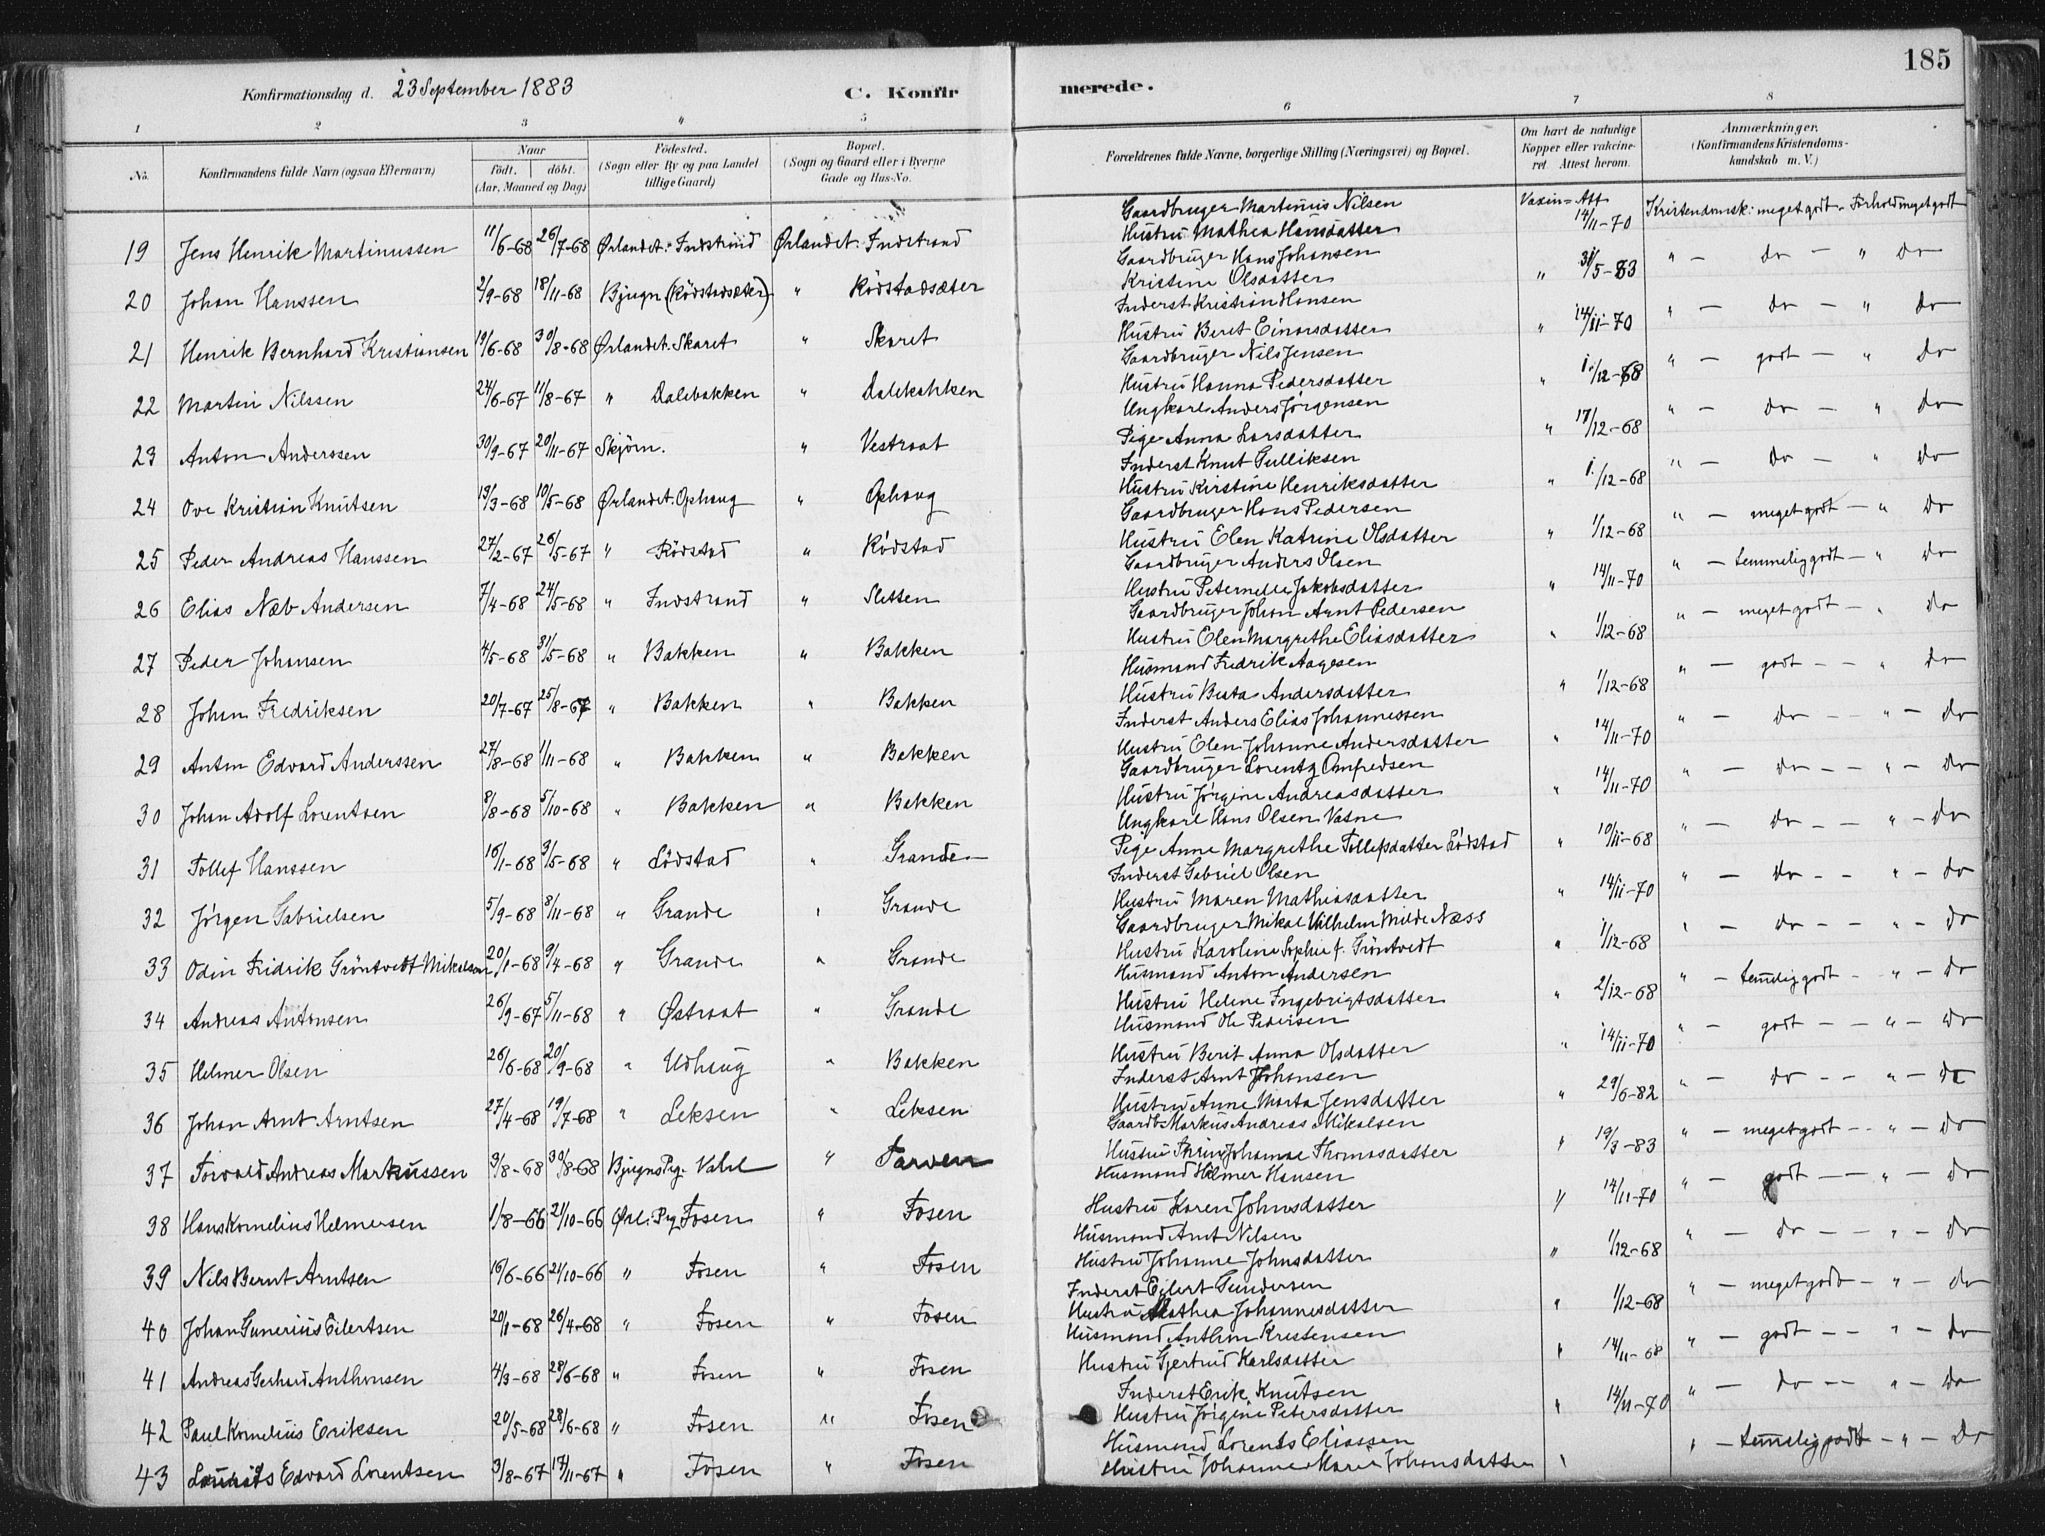 185
Konfirmationsdag d. 23 September 1883 C. Konfirmerede.
1 2 3 4 5 6 7 8
No. Konfirmandens fulde Navn (ogsaa Efternavn) Naar födt. döbt. (Aar, Maaned og Dag) Födested. (Sogn eller By og paa Landet tillige Gaard) Bopæl. (Sogn og Gaard eller i Byerne Gade og Hus-No. Forældrenes fulde Navne, borgerlige Stilling (Næringsvei) og Bopæl. Om havt de naturlige Kopper eller vaccineret. Attest herom. Anmærkninger. (Konfirmandens Kristendomskundskab m. V.)
Gaardbruger Martinus Nilsen Vaxin= Att
19 Jens Henrik Martinussen 11/6-68 26/7-68 Ørlandet: Indstrand Ørlandet: Indstrand Hustru Mathea Hansdatter 14/11-70 Kristendomsk: meget godt - Forhold meget godt
Gaardbruger Hans Johansen
20 Johan Hanssen 2/9-68 18/11-68 Bjugn (Rödstadsæter) " Rödstadsæter Kristine Olsdatter " 31/5-83 " - do - " do
Inderst Kristian Hansen
21 Henrik Bernhard Kristiansen 19/6-68 30/8-68 Ørlandet: Skaret " Skaret Hustru Beret Einarsdatter " 14/11-70 " - do - " do
Gaardbruger Nils Jensen
22 Martin Nilssen 24/6-67 11/8-67 " Dalebakken " Dalebakken Hustru Hanna Pedersdatter " 1/12-68 " - godt - " do
Ungkarl Anders Jørgensen
23 Anton Anderssen 30/9-67 20/11-67 Skjörn. " Vestraat Pige Anna Larsdatter " 17/12-68 " - do - " do
Inderst Knut Gulliksen
24 Ove Kristian Knutsen 19/3-68 10/5-68 Ørlandet: Ophaug " Ophaug Hustru Kirstine Henriksdatter " 1/12-68 " - do - " do
Gaardbruger Hans Pedersen
25 Peder Andreas Hanssen 27/2-67 26/5-67 " Rödstad " Rödstad Hustru Elen Katrine Olsdatter " 1/12-68 " - meget godt - " do
Gaardbruger Anders Olsen
26 Elias Næb Andersen 7/4-68 24/5-68 " Indstrand " Sletten Hustru Peternelle Jakobsdatter " 14/11-70 " - temmelig godt - " do
Gaardbruger Johan Arnt Pedersen
27 Peder Johansen 4/5-68 31/5-68 " Bakken " Bakken Hustru Elen Margrethe Eliasdatter " 1/12-68 " - meget godt - " do
Husmand Fredrik Aagesen
28 Johan Fredriksen 20/7-67 25/8-67 " Bakken " Bakken Hustru Berta Andersdatter " 1/12-68 " - godt - - " do
Inderst Anders Elias Johannessen
29 Anton Edvard Anderssen 27/8-68 1/11-68 " Bakken " Bakken Hustru Elen Johanne Andersdatter " 14/11-70 " - do - - " - do
Gaardbruger Lorentz Amfredsen
30 Johan Adolf Lorentsen 8/8-68 5/10-68 " Bakken " Bakken Hustru Jørgine Andreasdatter " 14/11-70 " - do - - " - do
Ungkarl Hans Olsen Vasne
31 Tollef Hanssen 16/1-68 3/5-68 " Lödstad " Grande Pige Anne Margrethe Tollefsdatter Lödstad " 10/11-68 " - do - - " - do
Inderst Gabriel Olsen
32 Jörgen Gabrielsen 5/9-68 8/11-68 " Grande " Grande Hustru Maren Mathiasdatter " 14/11-70 " - do - - " - do
Gaardbruger Mikal Vilhelm Milde Næss
33 Odin Fridrik Gröntvedt Mikelsen 20/1-68 9/4-68 " Grande " Grande Hustru Karoline Sophie f. Gröntvedt " 1/12-68 " - do - - " - do
Husmand Anton Andersen
34 Andreas Antonsen 26/9-67 5/11-68 " Østraat " Grande Hustru Helene Ingebrigtsdatter " 2/12-68 " - temlig godt - - " - do
Husmand Ole Pedersen
35 Helmer Olsen 26/6-68 20/9-68 " Udhaug " Bakken Hustru Berit Anna Olsdatter " 14/11-70 " - godt - - " - do
Inderst Arnt Johansen
36 Johan Arnt Arntsen 27/4-68 19/7-68 " Leksen " Leksen Hustru Anne Marta Jensdatter " 29/6-82 " - do - - " - do
Gaardb. Markus Andreas Mikalsen
37 Torvald Andreas Markussen 9/8-68 30/8-68 Bjugns Pg. Valsl " Tarven Hustru Johanna Thomasdatter " 19/3-83 " - meget godt - - " - do
Husmand Helmer Hansen
38 Hans Kornelius Helmersen 1/8-66 21/10-66 Ørl. Pg. Fosen " Fosen Hustru Karen Johnsdatter " 14/11-70 " - godt - - " - do
Husmand Arnt Nilsen
39 Nils Bernt Arntsen 16/6-66 21/10-66 " Fosen " Fosen Hustru Johanne Johnsdatter " 1/12-68 " - do - - " - do
Inderst Eilert Gundersen
40 Johan Gunerius Eilertsen 20/1-68 26/4-68 " Fosen " Fosen Hustru Mathea Johannesdatter " 1/12-68 " - meget godt - " - do
Husmand Anthon Kristensen
41 Andreas Gerhard Anthonsen 4/3-68 28/6-68 " Fosen " Fosen Hustru Gjertrud Karlsdatter " 14/11-68 " - godt - - " - do
Inderst Erik Knutsen
42 Paul Kornelius Eriksen 20/5-68 28/6-68 " Fosen " Fosen Hustru Jørgine Petersdatter " 14/11-70 " - do - - " - do
Husmand Lorents Eliassen
43 Laurits Edvard Lorentsen 3/8-67 17/11-67 " Fosen " Fosen Hustru Johanne Marie Johansdatter " " - temelig godt - " - do